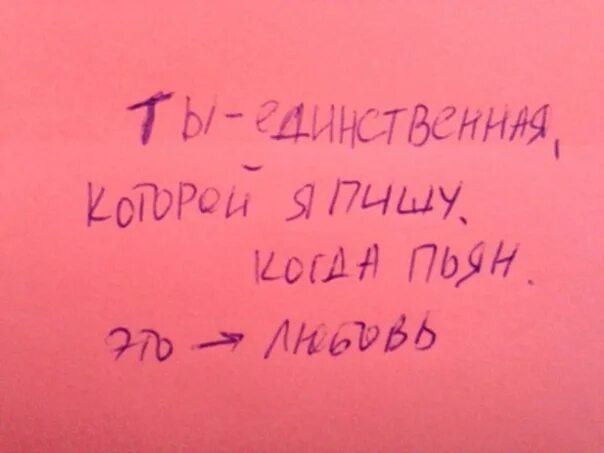 Ты-единственная,
которой я пишу,
когда пьян.
это → любовь